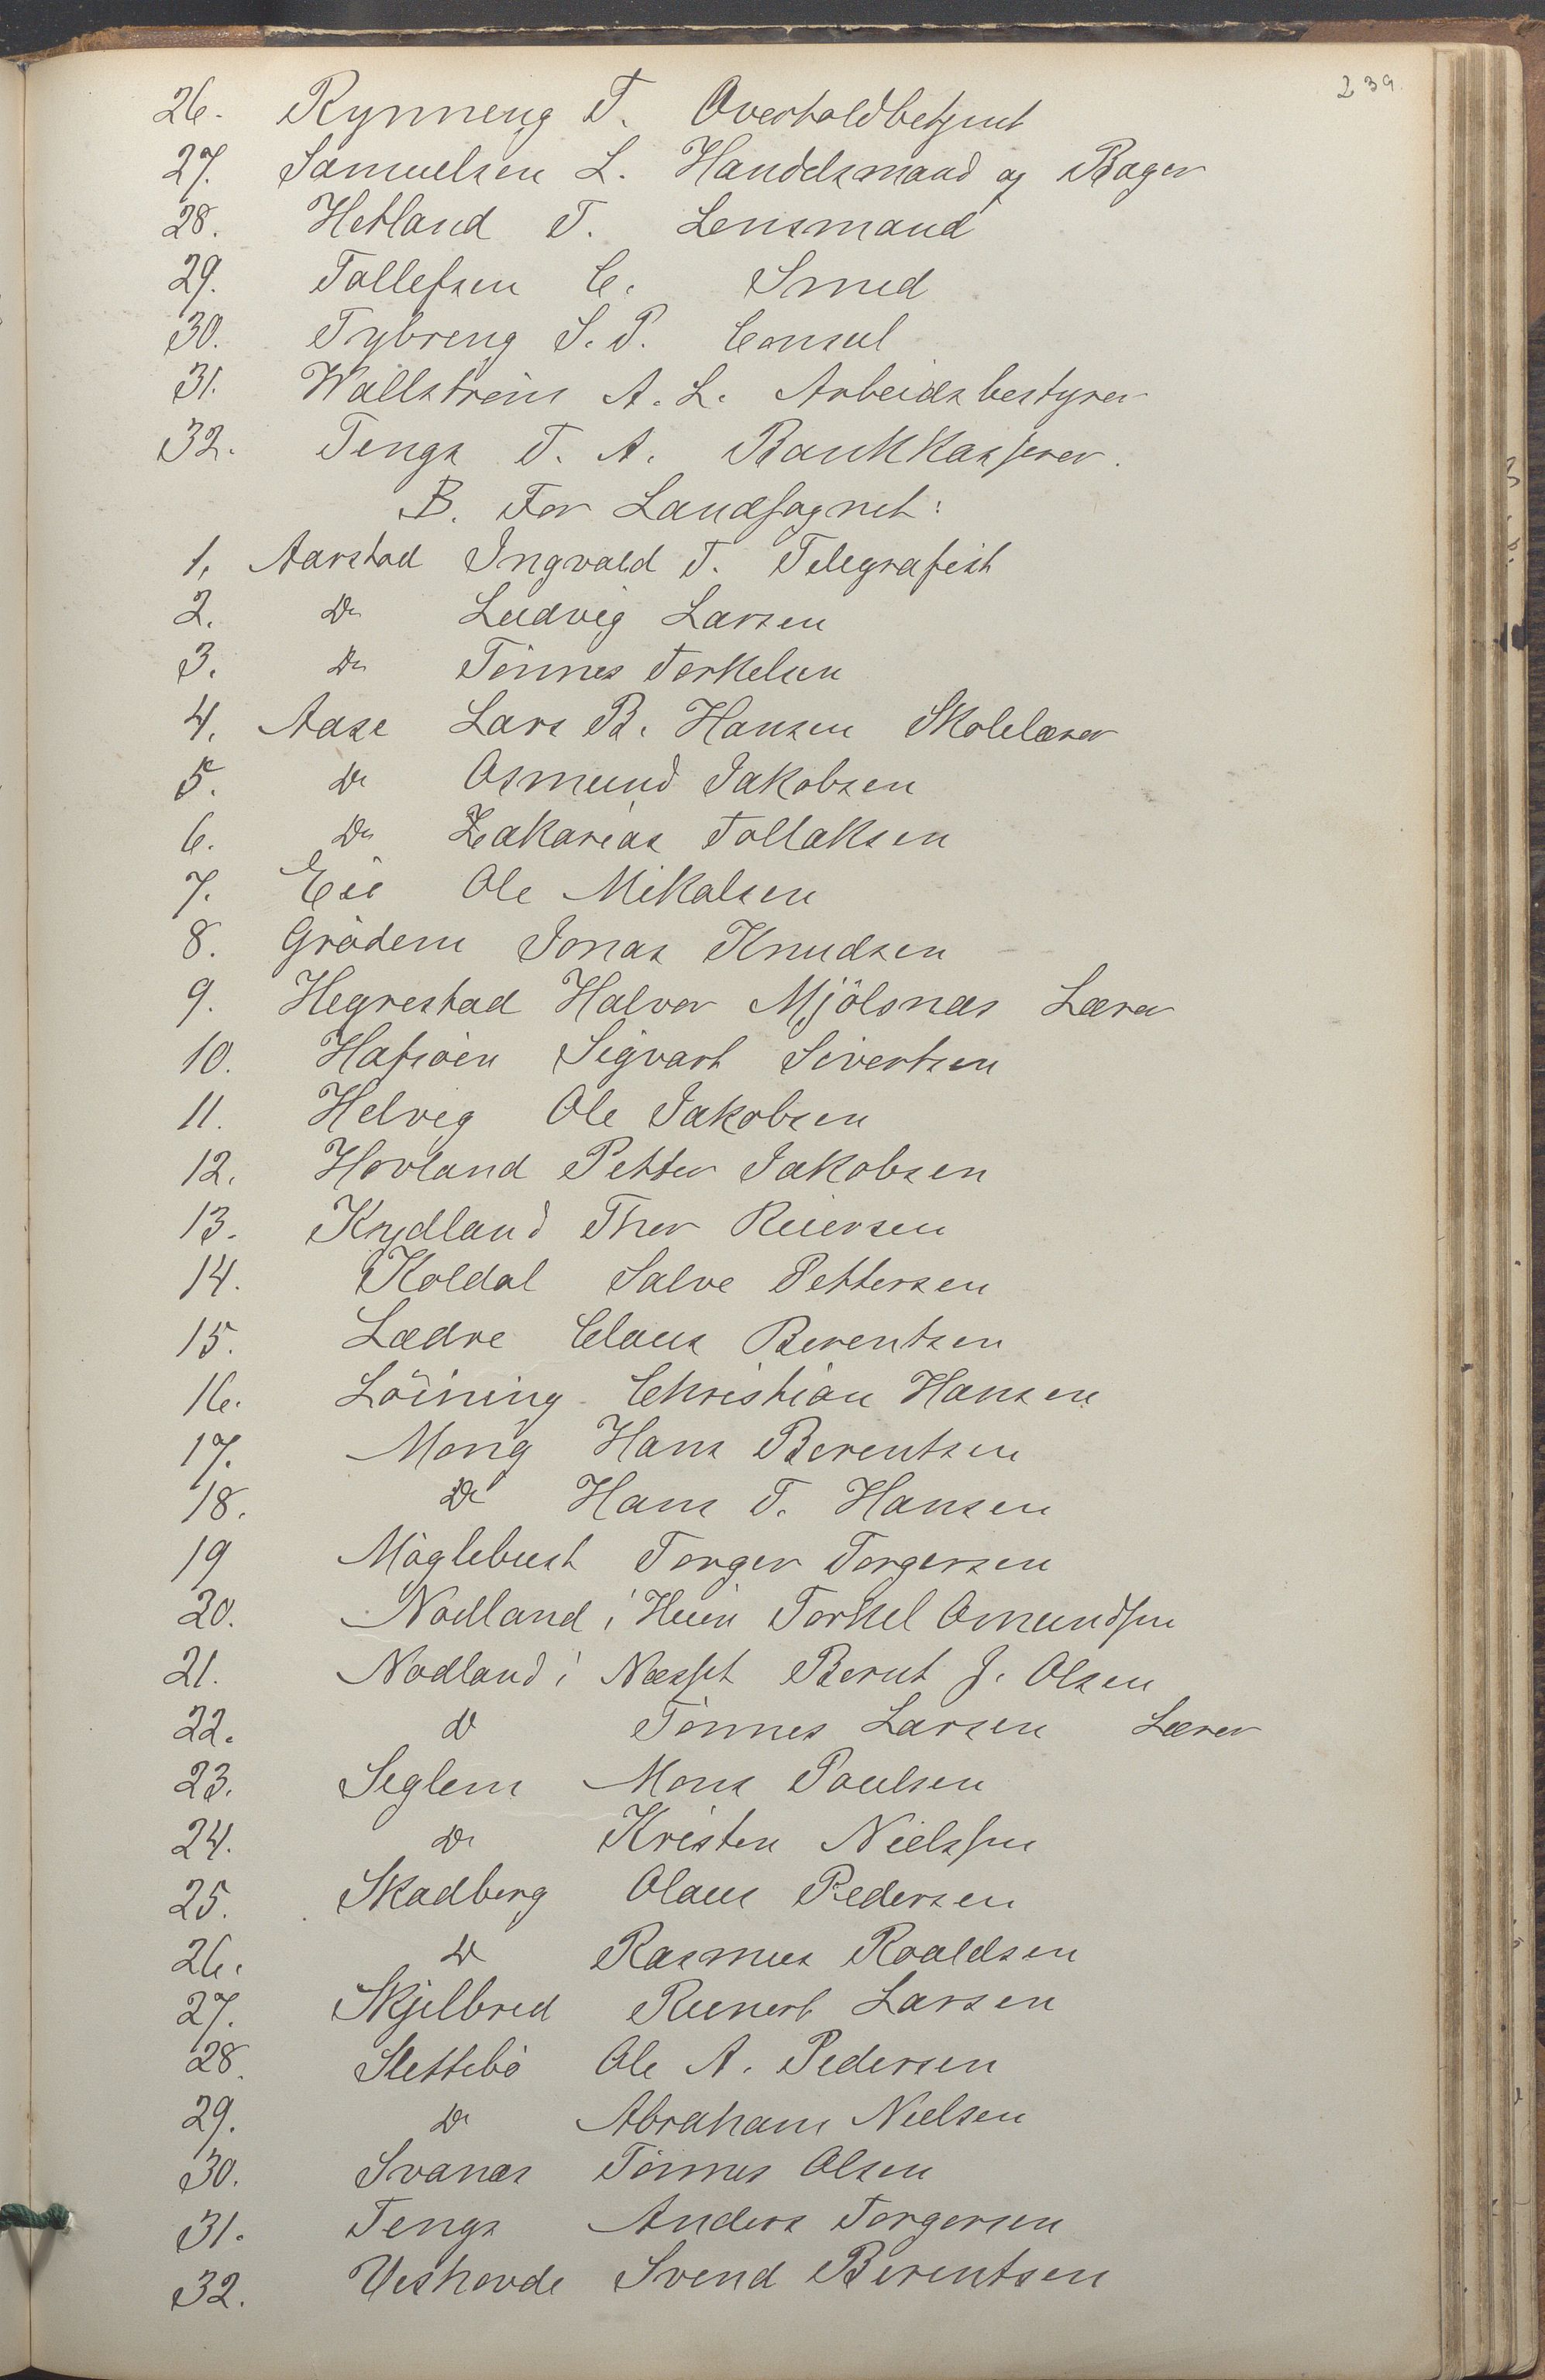 239.
26. Rynneng T. Overtoldbetjent
27. Samuelsen L. Handelsmand og Bager
28. Hetland T. Lensmand
29. Tollefsen C. Smed
30. Tybring S. P. Consul
31. Wallström A. L. Arbeidsbestyrer
32. Tengs T. A. Bankkasserer.
B. For Landsognet:
1. Aarstad Ingvald T. Telegrafist
2. Do Ludvig Larsen
3. Do Tönnes Torkelsen
4. Aase Lars B. Hansen Skolelærer
5. Do Osmund Jakobsen
6. Do Zakarias Tollaksen
7. Eie Ole Mikalsen
8. Grödem Jonas Knudsen
9. Hegrestad Halvor Mjölsnæs Lærer
10. Hafsöen Sigvart Sivertsen
11. Helvig Ole Jakobsen
12. Hovland Petter Jakobsen
13. Krydland Thor Reiersen
14. Koldal Salve Pettersen
15. Lædre Claus Berentsen
16. Löining Christian Hansen
17. Mong Hans Berentsen
18. Do Hans T. Hansen
19 Möglebust Torger Torgersen
20. Nodland i Heien Torkel Omundsen
21. Nodland i Næsset Bernt J. Olsen
22. do Tönnes Larsen Lærer
23. Seglem Mons Paulsen
24. Do Kristen Nielssen
25. Skadberg Olaus Pedersen
26. Do Rasmus Roaldsen
27. Skjelbred Reinert Larsen
28. Slettebö Ole A. Pedersen
29. Do Abraham Nielsen
30. Svanæs Tönnes Olsen
31. Tengs Anders Torgersen
32. Veshovde Svend Berentsen